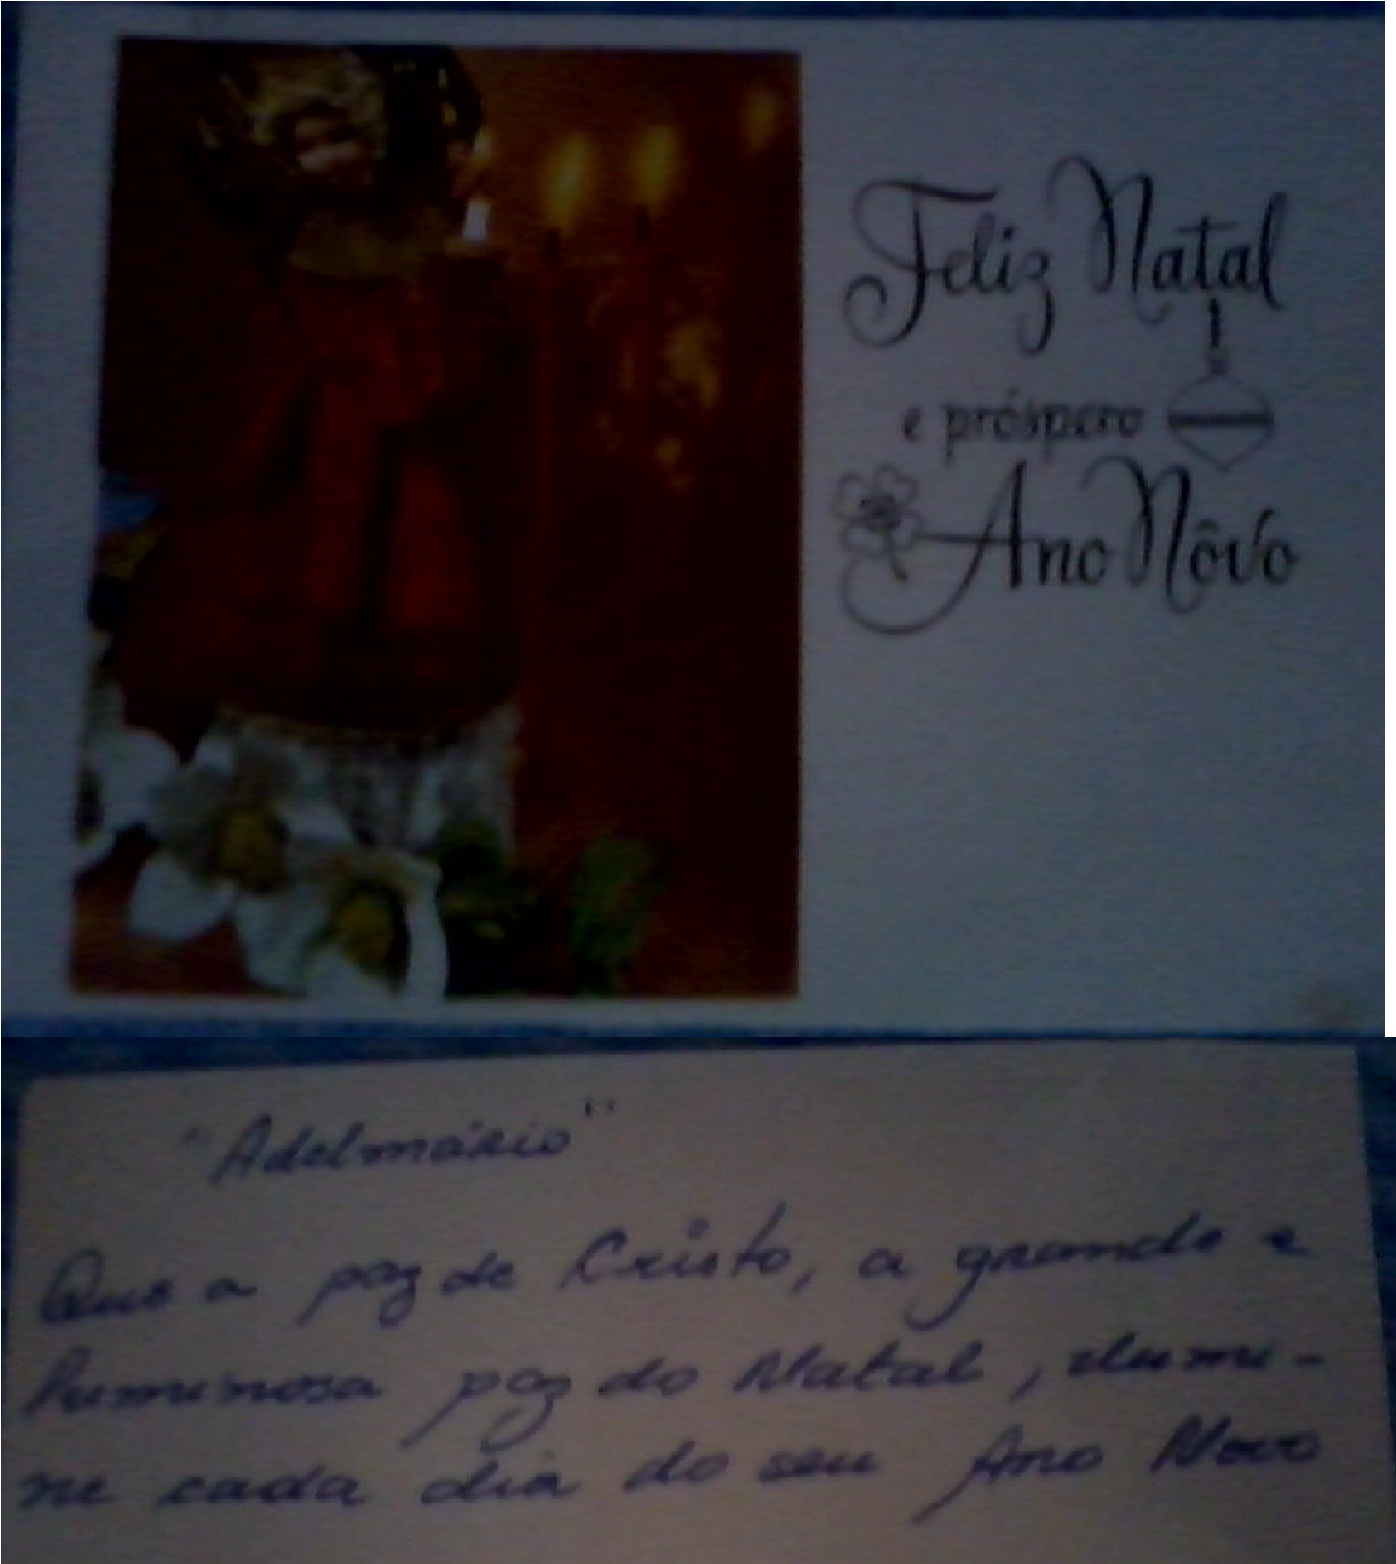 Feliz Natal
e próspero
Ano Nôvo
"Adelmário"
Que a paz de Cristo, a grande e
luminosa paz do Natal, ilumi-
ne cada dia do seu Ano Novo